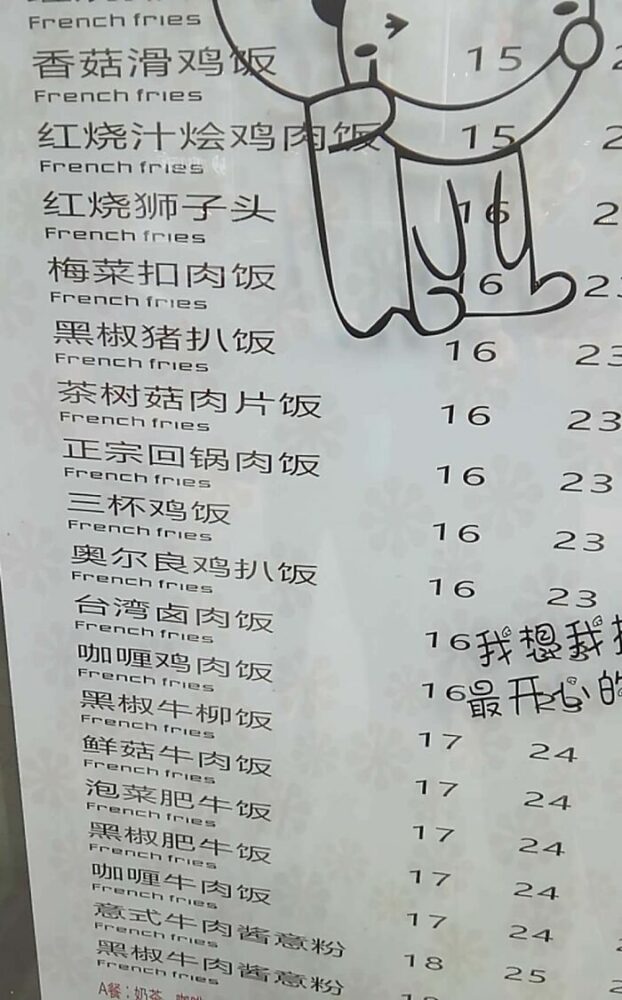 French fries
香菇滑鸡饭 15
French fries
红烧汁烩鸡肉饭 15
French fries
红烧狮子头 16
French fries
梅菜扣肉饭 16
French fries
黑椒猪扒饭 16 23
French fries
茶树菇肉片饭 16 23
French fries
正宗回锅肉饭 16 23
French fries
三杯鸡饭 16 23
French fries
奥尔良鸡扒饭 16 23
French fries
台湾卤肉饭 16 我想我
French fries
咖喱鸡肉饭 16 最开心的
French fries
黑椒牛柳饭 17 24
French fries
鲜菇牛肉饭 17 24
French fries
泡菜肥牛饭 17 24
French fries
黑椒肥牛饭 17 24
French fries
咖喱牛肉饭 17 24
French fries
意式牛肉酱意粉 18 25
French fries
黑椒牛肉酱意粉
French fries
A餐:奶茶